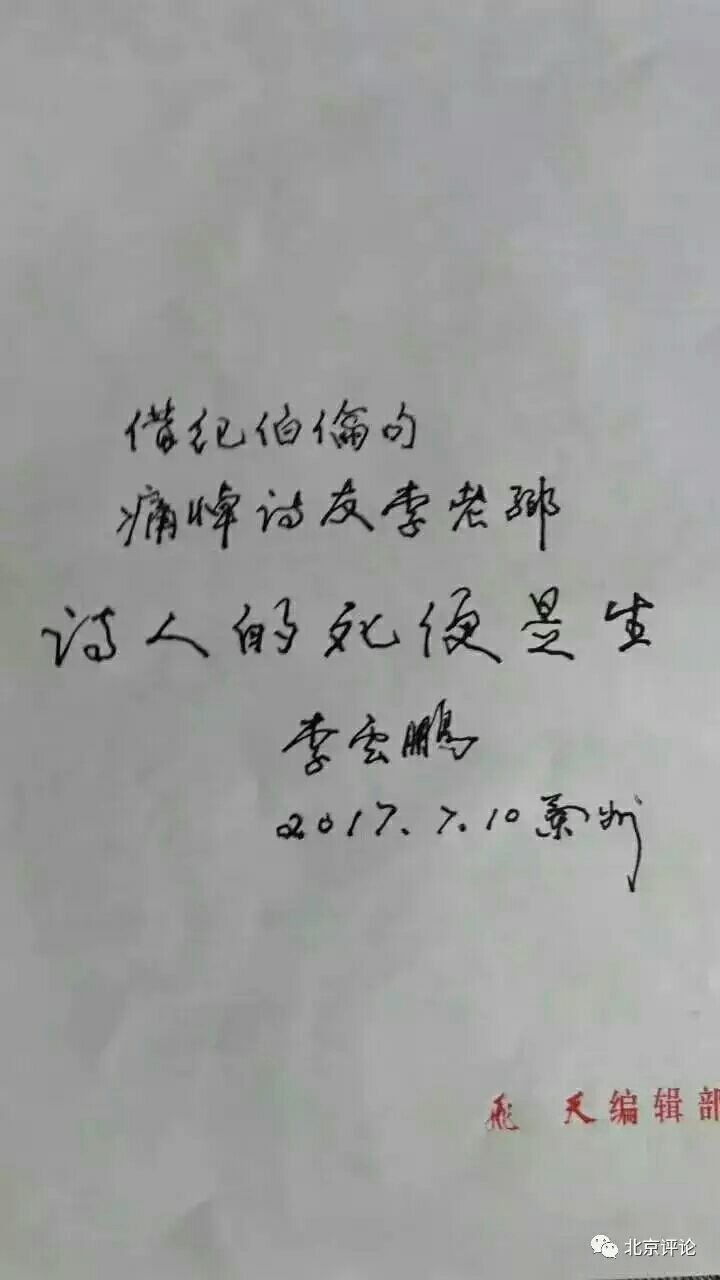 借纪伯倫句
痛悼诗友李老鄉
诗人的死便是生
李雲鹏
2017.7.10 蘭州
飛天编辑部
北京评论